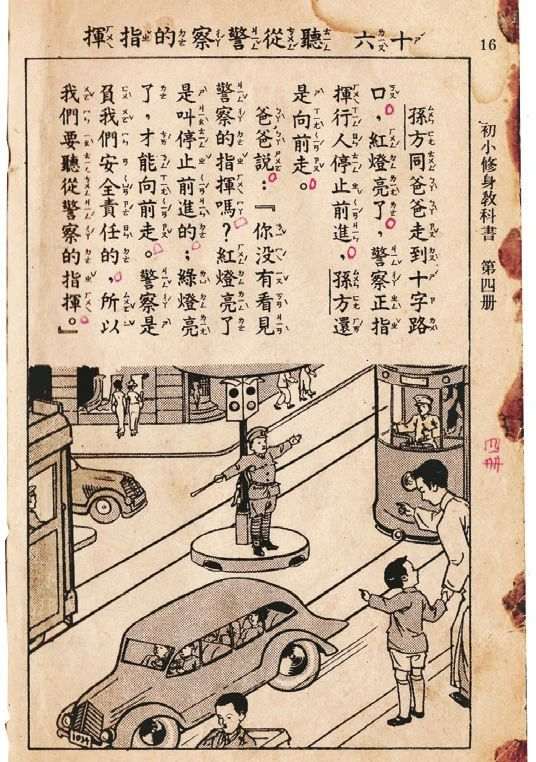 16
初小修身教科書 第四册
十六 聽從警察的指揮
孫方同爸爸走到十字路
口，紅燈亮了，警察正指
揮行人停止前進，孫方還
是向前走。
爸爸說：『你沒有看見
警察的指揮嗎？紅燈亮了
是叫停止前進的；綠燈亮
了，才能向前走。警察是
負我們安全責任的，所以
我們要聽從警察的指揮。』
四册
1034